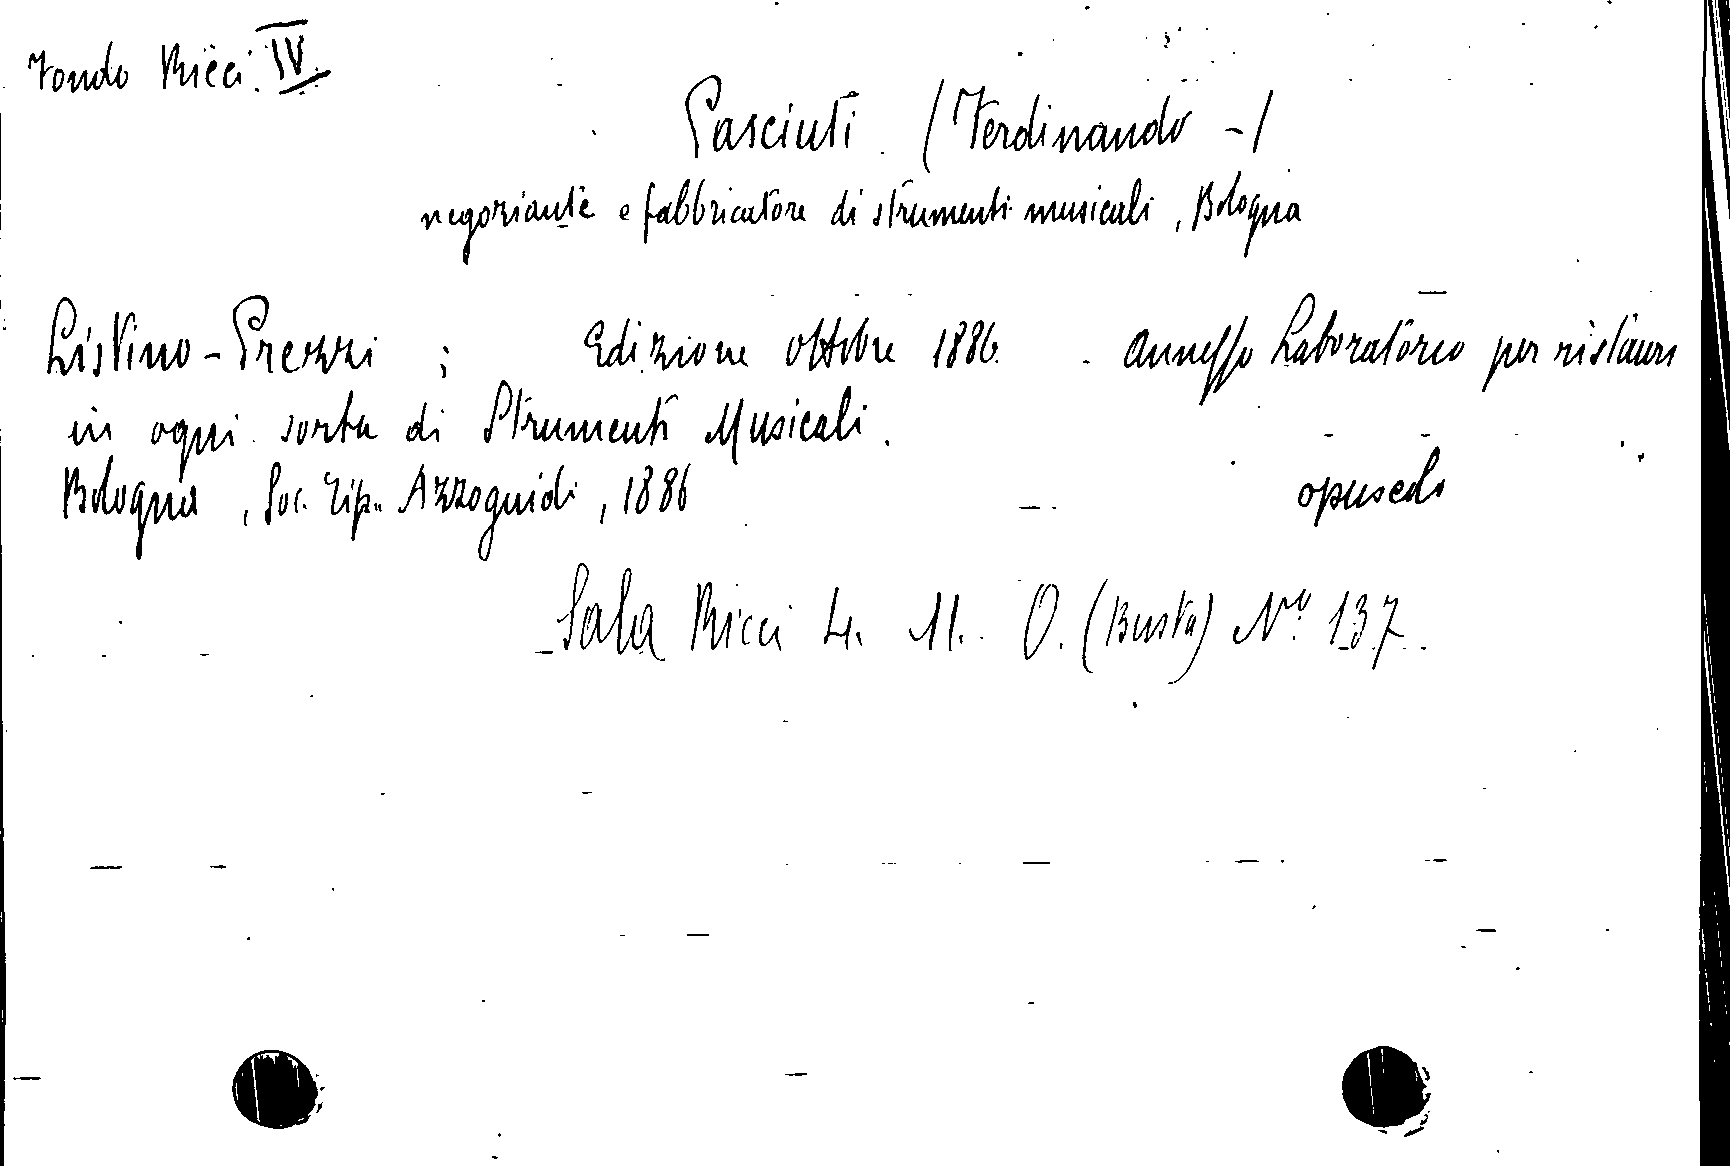 Fondo Ricci IV
Pasciuti (Ferdinando -)
negoziante e fabbricatore di strumenti musicali, Bologna
Listino-Prezzi ; Edizione ottobre 1886. Annesso Laboratorio per ristauri
in ogni sorta di Strumenti Musicali.
Bologna, Soc. Tip. Azzoguidi, 1886 opuscolo
Sala Ricci 4. 11. O. (Busta) Nº 137